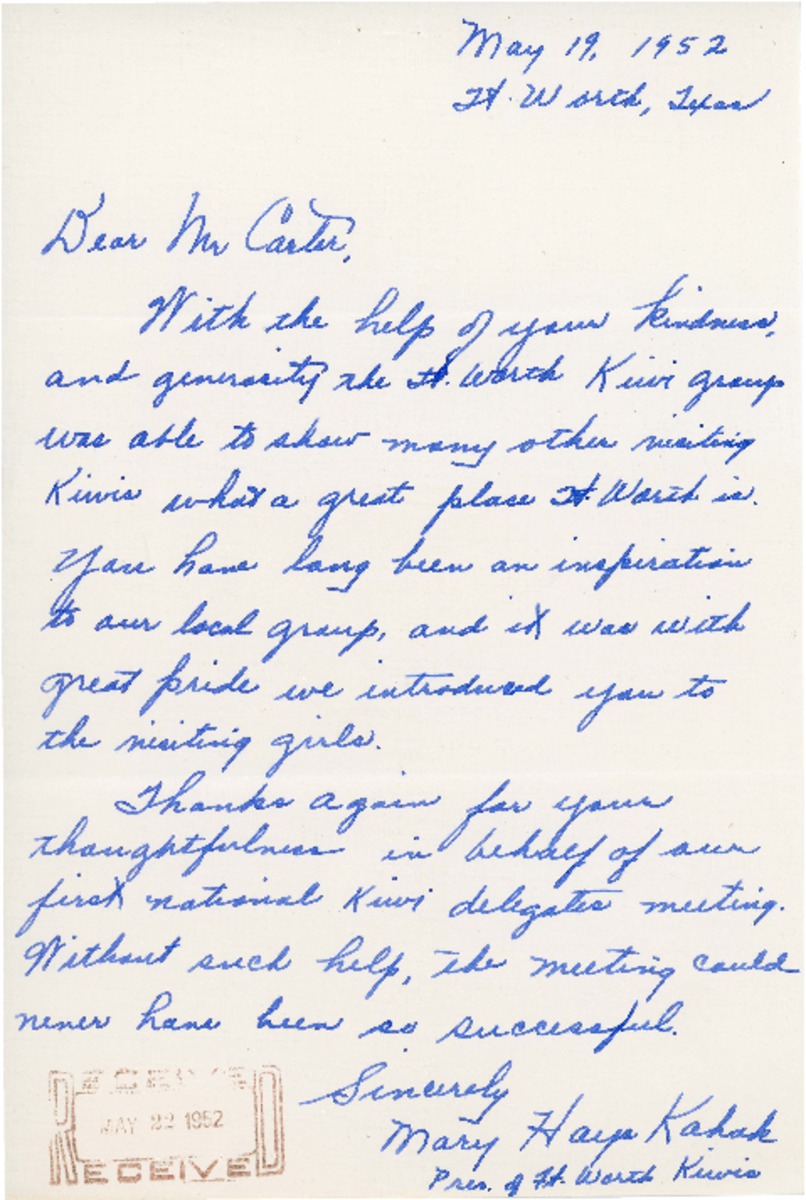 May 19, 1952
Ft. Worth, Texas
Dear Mr Carter,
With the help of your kindness,
and generosity the Ft. Worth Kiwi group
was able to show many other visiting
Kiwis what a great place Ft. Worth is.
You have long been an inspiration
to our local group, and it was with
great pride we introduced you to
the visiting girls.
Thanks again for your
thoughtfulness in behalf of our
first national Kiwi delegates meeting.
Without such help, the meeting could
never have been so successful.
Sincerely
Mary Hays Kahak
Pres. of Ft. Worth Kiwis
RECEIVED
MAY 22 1952
RECEIVED